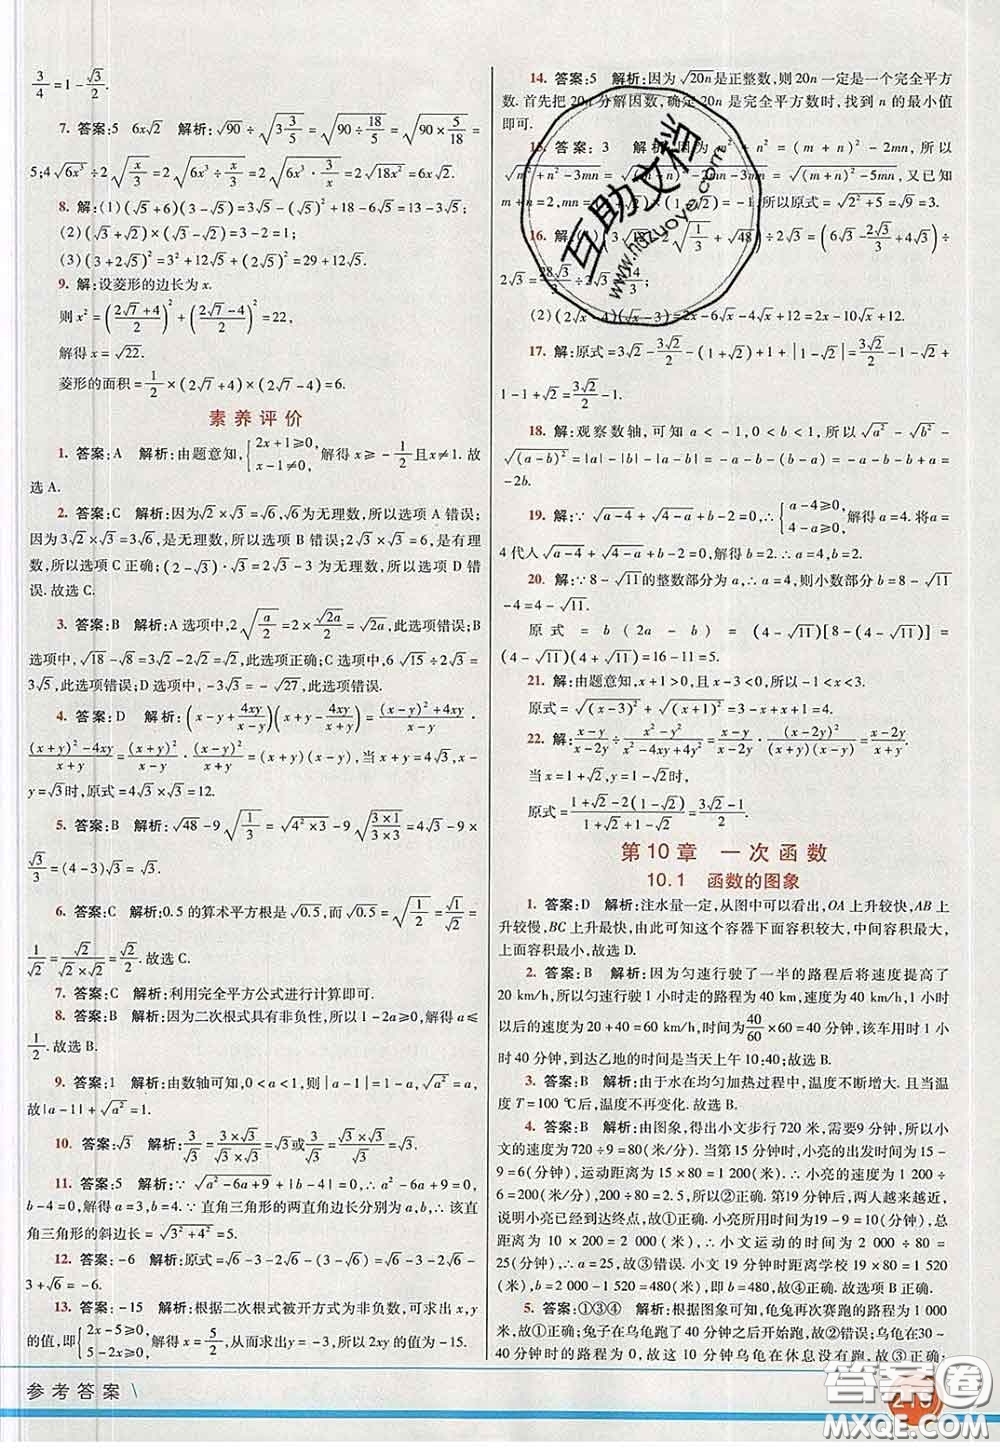 3/4=1-√3/2.
7. 答案:5 6x√2 解析:√90÷√(3 3/5)=√(90÷18/5)=√(90×5/18)=
5;4√(6x³)÷2√(x/3)=2√(6x³÷x/3)=2√(6x³·3/x)=2√(18x²)=6x√2.
8. 解:(1)(√5+6)(3-√5)=3√5-(√5)²+18-6√5=13-3√5.
(2)(√3+√2)×(√3-√2)=3-2=1;
(3)(2√3)²+12√5+(√5)²=12+12√5+5... 
9. 解:设菱形的边长为x.
则x²=((2√7+4)/2)²+((2√7-4)/2)²=22,
解得x=√22.
菱形的面积=1/2×(2√7+4)×(2√7-4)=6.
素养评价
1. 答案:A 解析:由题意知,{2x+1≥0, x-1≠0, 解得x≥-1/2且x≠1.故
选A.
2. 答案:C 解析:因为√2×√3=√6,√6为无理数,所以选项A错误;
因为3√2×√3=3√6,是无理数,所以选项B错误;
3. 答案:B 解析:A选项中,2√(a/2)=2×√(2a)/2=√(2a),此选项错误;B
选项中,√18-√8=3√2-2√2=√2,此选项正确;C选项中6√15÷2√3=
3√5,此选项错误;D选项中,-3√3=-√27,此选项错误.
4. 答案:D 解析:(x-y+4xy/(x-y))(x+y-4xy/(x+y))=((x-y)²+4xy)/(x-y)·
((x+y)²-4xy)/(x+y)=(x+y)²/(x-y)·(x-y)²/(x+y)=(x+y)(x-y),当x+y=4√3,x-
y=√3时,原式=4√3×√3=12.
5. 答案:B 解析:√48-9√(1/3)=√(4²×3)-9√((3×1)/(3×3))=4√3-9×
√3/3=(4-3)√3=√3.
6. 答案:C 解析:0.5的算术平方根是√0.5,而√0.5=√(1/2)=√1/√2=
1/√2=√2/(√2×√2)=√2/2.故选C.
7. 答案:C 解析:利用完全平方公式进行计算即可.
8. 答案:B 解析:因为二次根式具有非负性,所以1-2a≥0,解得a≤
1/2.故选B.
9. 答案:1 解析:由数轴可知,0<a<1,则|a-1|=1-a,√a²=a,
故|a-1|+√a²=1.
10. 答案:√3 解析:3/√3=(3×√3)/(√3×√3)=√3或3/√3=(√3×√3)/√3=√3.
11. 答案:5 解析:∵√(a²-6a+9)+|b-4|=0,∴a²-6a+9=0,b-4=
0,解得a=3,b=4.∵直角三角形的两直角边长分别为a,b,∴该直
角三角形的斜边长=√(3²+4²)=5.
12. 答案:-6 解析:原式=√6-3-2√6-(3-√6)=√6-3-2√6
-3+√6=-6.
13. 答案:-15 解析:根据二次根式被开方式为非负数,可求出x,y
的值,即{2x-5≥0, 5-2x≥0, 解得x=5/2,从而求出y=-3,所以2xy的值为-15.
14. 答案:5 解析:因为√(20n)是正整数,则20n一定是一个完全平方
数.首先把20n分解因数,确定20n是完全平方数时,找到n的最小值
即可.
15. 答案:3 解析:因为m²+n²=(m+n)²-2mn,所以
√(m²+n²-3mn)=√((m+n)²-2mn-3mn)=√((m+n)²-5mn),又已知
m+n=2,mn=(1+√2)×(1-√2)=-1,所以原式=√(2²+5)=√9=3.
16. 解:(1)(3√12-2√(1/3)+√48)÷2√3=(6√3-2√3/3+4√3)÷
2√3=28√3/3÷2√3=14/3;
(2)(2√x-4)(√x-3)=2x-6√x-4√x+12=2x-10√x+12.
17. 解:原式=3√2-3√2/2-(1+√2)+1+|1-√2|=3√2/2-√2+
1-1-1+√2=3√2/2-1.
18. 解:观察数轴,可知a<-1,0<b<1,所以√a²-√b²-
√((a-b)²)=|a|-|b|-|a-b|=-a-b-(b-a)=-a-b-b+a=
-2b.
19. 解:∵√(a-4)+√(4-a)+b-2=0,∴{a-4≥0, 4-a≥0, 解得a=4.将a=
4代入√(a-4)+√(4-a)+b-2=0,解得b=2.∴a=4,b=2.
20. 解:∵8-√11的整数部分为a,∴a=4,则小数部分b=8-√11
-4=4-√11.
原式=b(2a-b)=(4-√11)[8-(4-√11)]=
(4-√11)(4+√11)=16-11=5.
21. 解:由题意知,x+1>0,且x-3<0,所以-1<x<3.
原式=√((x-3)²)+√((x+1)²)=3-x+x+1=4.
22. 解:(x-y)/(x-2y)÷(x²-y²)/(x²-4xy+4y²)=(x-y)/(x-2y)·(x-2y)²/((x+y)(x-y))=(x-2y)/(x+y).
当x=1+√2,y=1-√2时,
原式=(1+√2-2(1-√2))/(1+√2+1-√2)=(3√2-1)/2.
第10章 一次函数
10.1 函数的图象
1. 答案:D 解析:注水量一定,从图中可以看出,OA上升较快,AB上
升较慢,BC上升最快,由此可知这个容器下面容积较大,中间容积最大,
上面容积最小,故选D.
2. 答案:B 解析:因为匀速行驶了一半的路程后将速度提高了
20 km/h,所以匀速行驶1小时走的路程为40 km,速度为40 km/h,1小时
以后的速度为20+40=60(km/h),时间为40/60×60=40分钟,该车用时1小
时40分钟,到达乙地的时间是当天上午10:40;故选B.
3. 答案:B 解析:由于水在均匀加热过程中,温度不断增大.且当温
度T=100 ℃后水沸腾,温度不再变化.故选B.
4. 答案:B 解析:由图象,得出小文步行720米,需要9分钟,所以小
文的速度为720÷9=80(米/分).当第15分钟时,小亮的出发时间为15
-9=6(分钟),运动距离为15×80=1 200(米),∴小亮的速度为1 200
÷6=200(米/分),200÷80=2.5,所以②正确.第19分钟后,两人越来越近,
说明小亮已经到达终点,故①正确.小亮所用时间为19-9=10(分钟),
路程为10×200=2 000(米),∴小文运动的时间为2 000÷80=
25,∴a=25,故③错误.小文19分钟时距离学校19×80=1 520
(米),b=2 000-1 520=480(米),即b=480,故④正确.故选项B.
5. 答案:①③④ 解析:根据图象可知,龟兔再次赛跑的路程为1 000
米,故①正确;兔子在乌龟跑了40分钟后开始跑,故②错误;乌龟在30~
40分钟时的路程为0,故这10分钟乌龟在休息没有跑.故③正确;
参考答案
互助文档
www.hdzuoye.com
答案圈
MXQE.COM